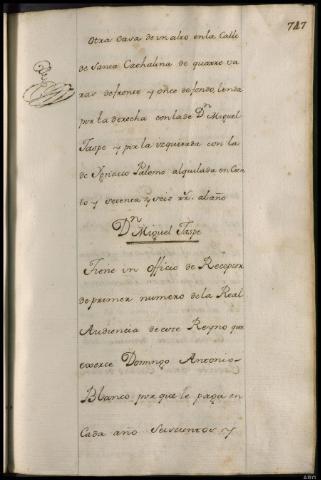 747
Otra Casa de un alto en la Calle
de Santa Cathalina de quatro va
ras de frente y onze de fondo, linda
por la derecha con la de Dn Miguel
Taspe y por la yzquierda con la
de Ygnacio Palomo alquilada en Cien
to y setenta y seis rr. al año
Dn Miguel Taspe
Tiene un officio de Receptor
de primer numero de la Real
Audiencia de este Reyno que
exerce Domingo Antonio
Blanco, por que le paga en
Cada año Seiscientos y